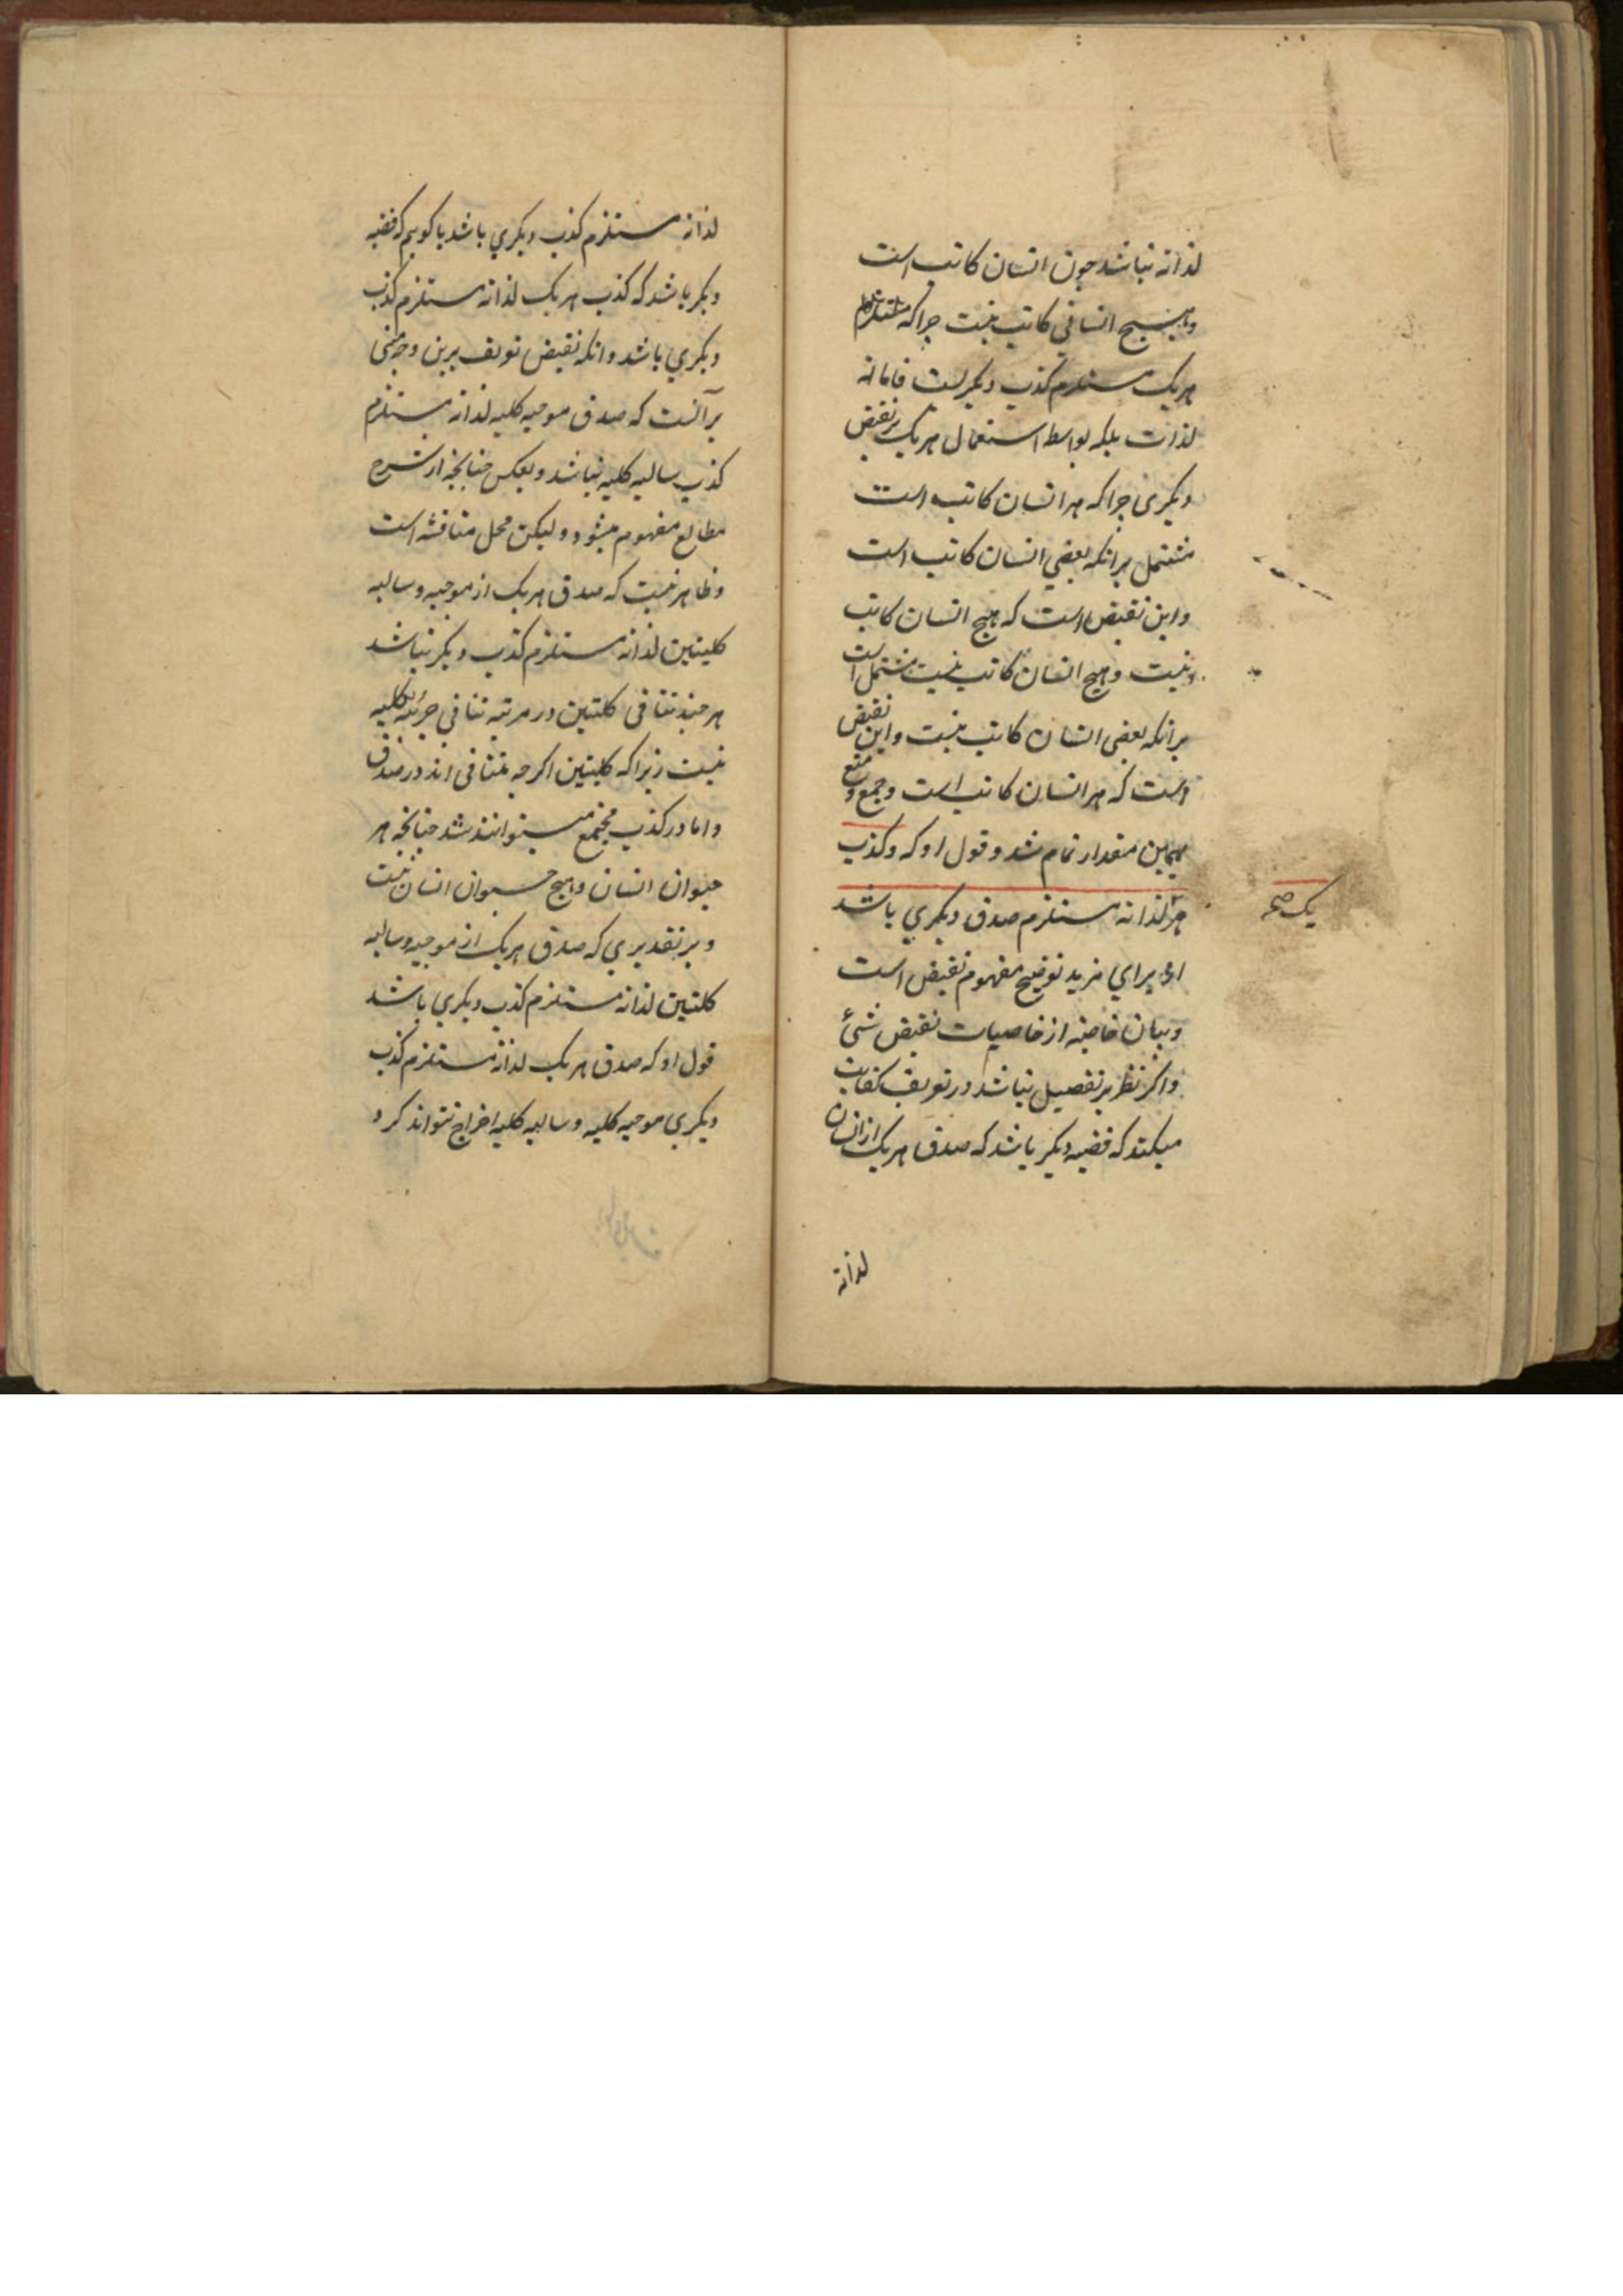 لذاته نباشد چون انسان کاتب است
و هیچ انسانی کاتب نیست چراکه
هریک مستلزم کذب دیگرست فاما نه
لذات بلکه بواسطه استعمال هریک بر نقیض
دیگری چراکه هر انسان کاتب است
مشتمل برانکه بعضی انسان کاتب است
و این نقیض است که هیچ انسان کاتب
نیست و هیچ انسان کاتب نیست مشتمل است
برانکه بعضی انسان کاتب نیست و این نقیض
است که هر انسان کاتب است و جمع و منع
بهمین مقدار تمام شد و قول او که و کذب
هر لذاته مستلزم صدق دیگری باشد
یک صح
او برای مزید توضیح مفهوم نقیض است
و بیان خاصیه از خاصیات نقیض شئ
و اکر نظر بر تفصیل نباشد در تعریف کفایت
میکند که قضیه دیکر باشد که صدق هریک ازان
لذاته
لذاته مستلزم کذب دیکری باشد یا کوییم که قضیه
دیکر باشد که کذب هریک لذاته مستلزم کذب
دیکری باشد و انکه نقیض تعریف برین وجه مبنی
بر آنست که صدق موجبه کلیه لذاته مستلزم
کذب سالبه کلیه نباشد و بعکس چنانچه از شرح
مطالع مفهوم میشود و لیکن محل مناقشه است
و ظاهر نیست که صدق هریک از موجبه و سالبه
کلیتین لذاته مستلزم کذب دیکر نباشد
هرچند تنافی کلیتین در مرتبه تنافی جزئیه و کلیه
نیست زیراکه کلیتین اکرچه متنافی اند در صدق
و اما در کذب مجتمع میتوانند شد چنانچه هر
حیوان انسان و هیچ حیوان انسان نیست
و بر تقدیری که صدق هریک از موجبه و سالبه
کلیتین لذاته مستلزم کذب دیکری باشد
قول او که صدق هریک لذاته مستلزم کذب
دیکری موجبه کلیه و سالبه کلیه اخراج نتواند کرد